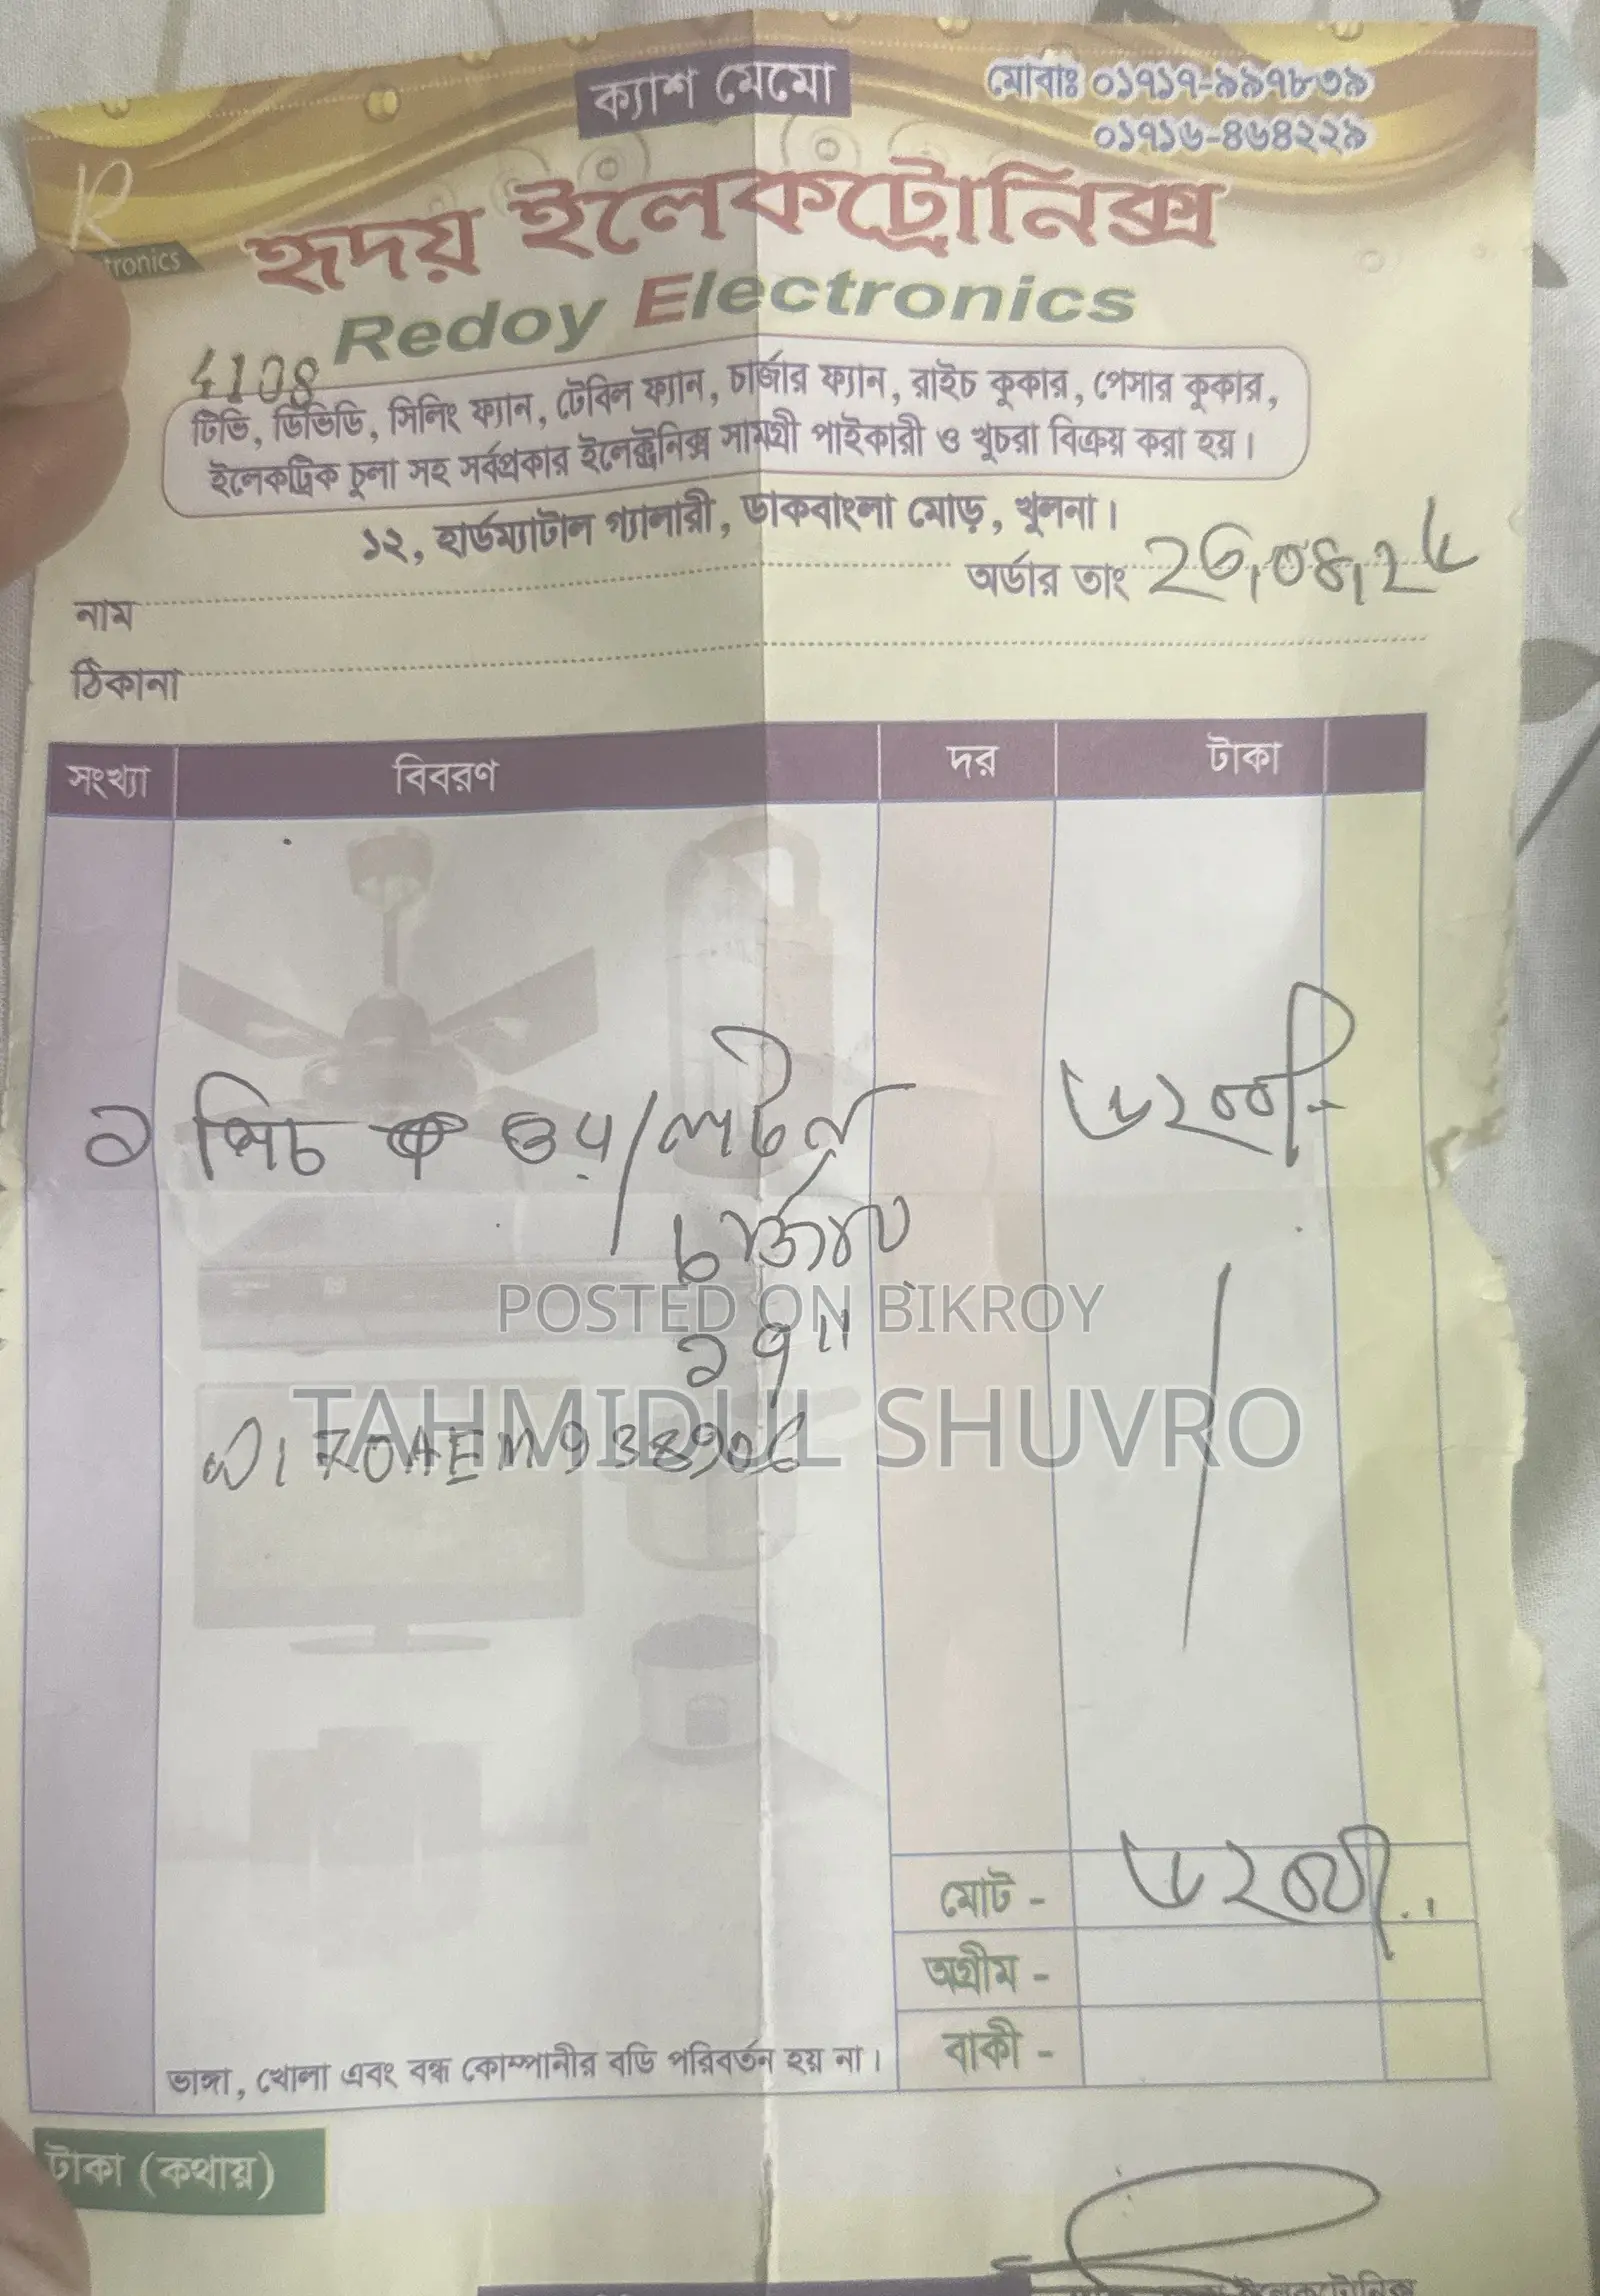 ক্যাশ মেমো
মোবাঃ ০১৭১৭-৯৯৭৮৩৯
০১৭১৬-৪৬৪২২৯
R
tronics
হৃদয় ইলেকট্রোনিক্স
Redoy Electronics
4108
টিভি, ডিভিডি, সিলিং ফ্যান, টেবিল ফ্যান, চার্জার ফ্যান, রাইচ কুকার, পেসার কুকার,
ইলেকট্রিক চুলা সহ সর্বপ্রকার ইলেক্ট্রনিক্স সামগ্রী পাইকারী ও খুচরা বিক্রয় করা হয়।
১২, হার্ডম্যাটাল গ্যালারী, ডাকবাংলা মোড়, খুলনা।
নাম অর্ডার তাং
ঠিকানা
সংখ্যা বিবরণ দর টাকা
১ পিচ ৬২০০/-
চার্জার
POSTED ON BIKROY
১৭"
TAHMIDUL SHUVRO
মোট - ৬২০০/
অগ্রীম -
ভাঙ্গা, খোলা এবং বন্ধ কোম্পানীর বডি পরিবর্তন হয় না। বাকী -
টাকা (কথায়)
ইলেকট্রোনিক্স